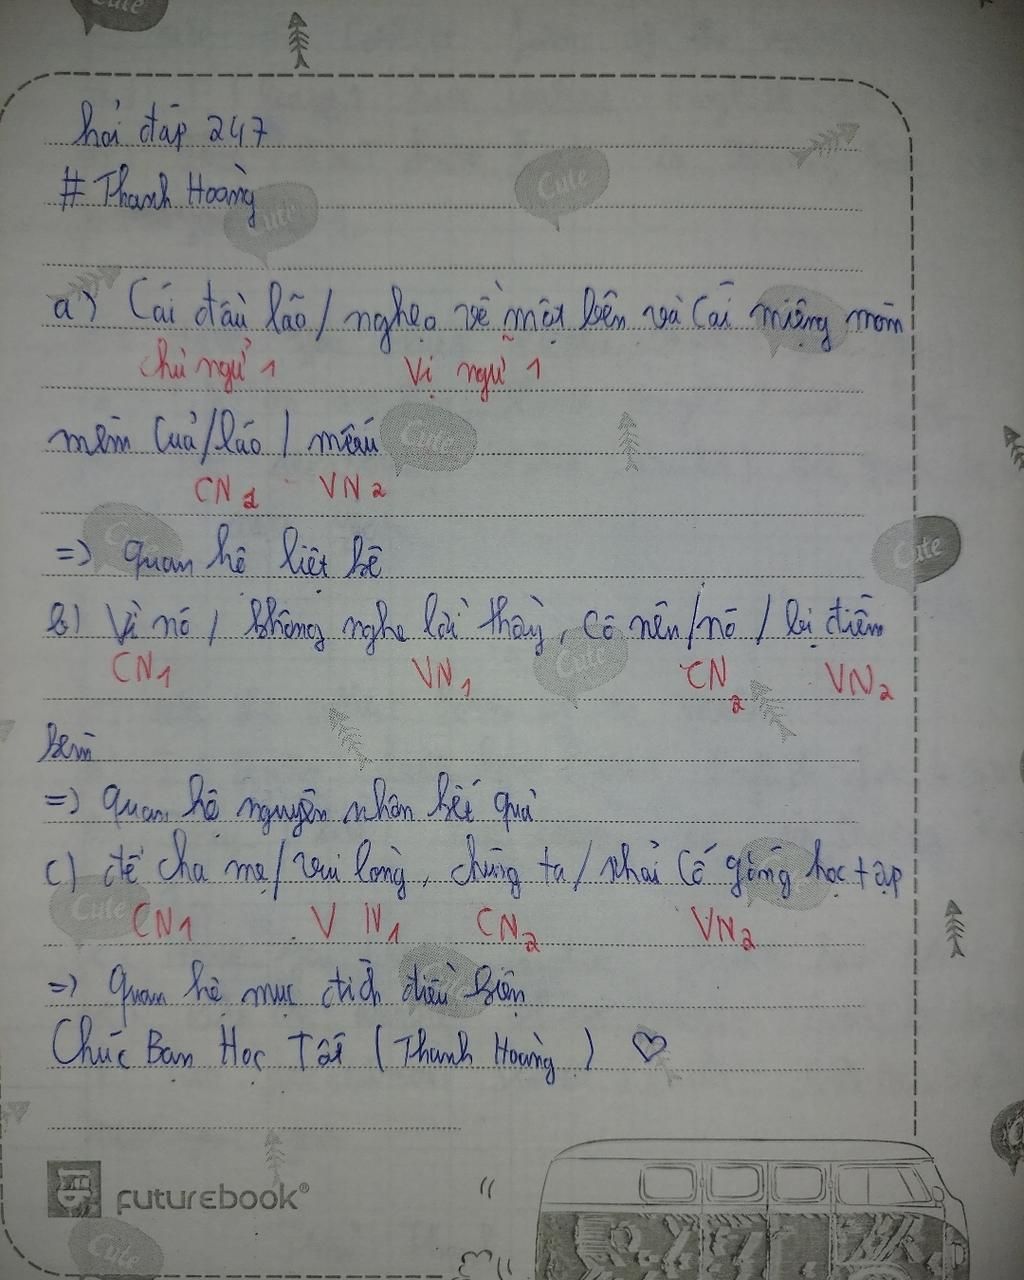 Cute
hỏi đáp 247
# Thanh Hoàng
Cute
Cute
a) Cái đầu lão / nghẹo về một bên và Cái miệng móm
chủ ngữ 1 Vị ngữ 1
mém Của / lão / mếu
Cute
CN2 VN2
=> quan hệ liệt kê
Cute
b) Vì nó / không nghe lời thầy, cô nên / nó / bị điểm
Cute
CN1 VN1 CN2 VN2
kém
=> quan hệ nguyên nhân kết quả
c) để cha mẹ / vui lòng, chúng ta / phải cố gắng học tập
Cute
CN1 VN1 CN2 VN2
=> quan hệ mục đích điều kiện
Chúc Bạn Học Tốt (Thanh Hoàng) ♡
FUTUREBOOK®
Cute